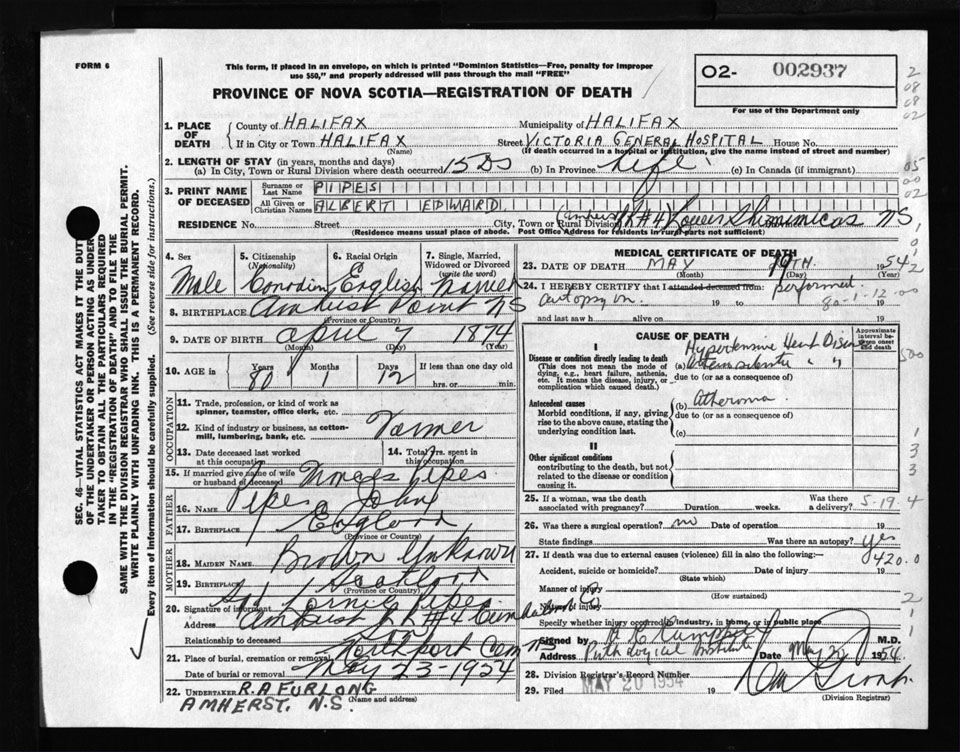 FORM 6
This form, if placed in an envelope, on which is printed "Dominion Statistics—Free, penalty for improper
use $50," and properly addressed will pass through the mail "FREE"
PROVINCE OF NOVA SCOTIA—REGISTRATION OF DEATH
O2- 002937
For use of the Department only
1. PLACE OF DEATH County of HALIFAX Municipality of HALIFAX
If in City or Town HALIFAX Street VICTORIA GENERAL HOSPITAL House No.
(Name) (If death occurred in a hospital or institution, give the name instead of street and number)
2. LENGTH OF STAY (in years, months and days)
(a) In City, Town or Rural Division where death occurred 15 DS (b) In Province Life (c) In Canada (if immigrant)
3. PRINT NAME OF DECEASED Surname or Last Name PIPES
All Given or Christian Names ALBERT EDWARD
RESIDENCE No. Street City, Town or Rural Division (Amherst) RR#4 Lower Shinimicas NS
(Residence means usual place of abode. Post Office Address for residents in rural parts not sufficient)
4. Sex Male
5. Citizenship (Nationality) Canadian
6. Racial Origin English
7. Single, Married, Widowed or Divorced (write the word) Married
8. BIRTHPLACE Amherst Point NS
(Province or Country)
9. DATE OF BIRTH April 7 1874
(Month) (Day) (Year)
10. AGE in Years 80 Months 1 Days 12 If less than one day old hrs. or min.
OCCUPATION
11. Trade, profession, or kind of work as spinner, teamster, office clerk, etc.
12. Kind of industry or business, as cotton-mill, lumbering, bank, etc. Farmer
13. Date deceased last worked at this occupation
14. Total yrs. spent in this occupation
15. If married give name of wife or husband of deceased Pipes
FATHER
16. NAME Pipes John
17. BIRTHPLACE England
MOTHER
18. MAIDEN NAME Brown Unknown
19. BIRTHPLACE Scotland
(Province or Country)
20. Signature of informant Pipes
Address Amherst RR#4 Cumberland Co
Relationship to deceased
21. Place of burial, cremation or removal Northport Cem NS
Date of burial or removal May 23-1954
22. UNDERTAKER R.A FURLONG
AMHERST, N.S. (Name and address)
MEDICAL CERTIFICATE OF DEATH
23. DATE OF DEATH MAY 19TH 1954
(Month) (Day) (Year)
24. I HEREBY CERTIFY that I attended deceased from: performed
autopsy on 19 to 80-1-12 19
and last saw h alive on 19
CAUSE OF DEATH
Approximate interval between onset and death
I
Disease or condition directly leading to death
(This does not mean the mode of dying, e.g., heart failure, asthenia, etc. It means the disease, injury, or complication which caused death.)
Hypertensive Heart Disease
(a)
due to (or as a consequence of)
Antecedent causes
Morbid conditions, if any, giving rise to the above cause, stating the underlying condition last.
(b) Atheroma
due to (or as a consequence of)
(c)
II
Other significant conditions
contributing to the death, but not related to the disease or condition causing it.
25. If a woman, was the death associated with pregnancy? Duration weeks. Was there a delivery? 5-19-4
26. Was there a surgical operation? no Date of operation 19
State findings Was there an autopsy? yes
27. If death was due to external causes (violence) fill in also the following:— 420.0
Accident, suicide or homicide? Date of injury 19
(State which)
Manner of injury
(How sustained)
Nature of injury
Specify whether injury occurred in industry, in home, or in public place
Signed by M.D.
Address Pathological Institute Date May 20 1954.
28. Division Registrar's Record Number
29. Filed MAY 20 1954 19
(Division Registrar)
SEC. 46—VITAL STATISTICS ACT MAKES IT THE DUTY
OF THE UNDERTAKER OR PERSON ACTING AS UNDERTAKER TO OBTAIN ALL THE PARTICULARS REQUIRED
IN THE "REGISTRATION OF DEATH" AND TO FILE THE
SAME WITH THE DIVISION REGISTRAR WHO SHALL ISSUE THE BURIAL PERMIT.
WRITE PLAINLY WITH UNFADING INK. THIS IS A PERMANENT RECORD.
Every item of information should be carefully supplied. (See reverse side for instructions.)